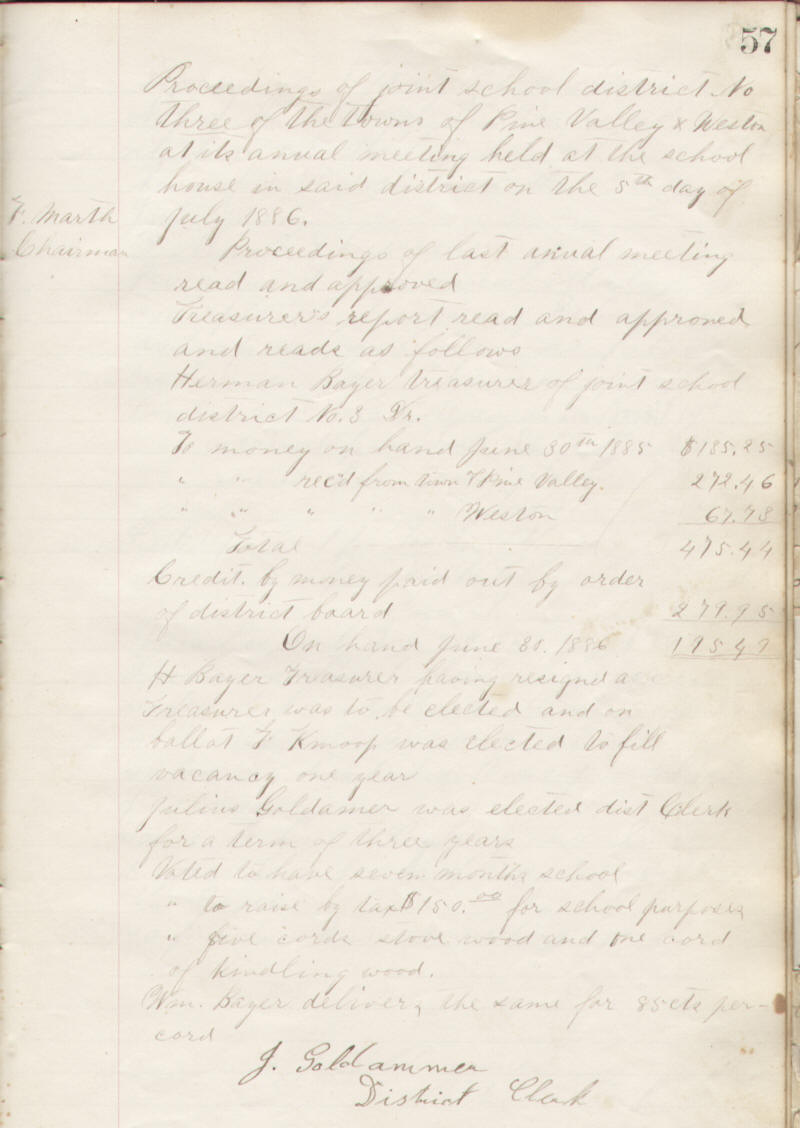 57
Proceedings of joint school district No
three of the towns of Pine Valley & Weston
at its anual meeting held at the school
house in said district on the 5th day of
F. Marth
july 1886.
Chairman
Proceedings of last anual meeting
read and approved
Treasurer's report read and approved
and reads as follows
Herman Bayer treasurer of joint school
district No. 3 Dr.
To money on hand June 30th 1885 $185.25
" " rec'd from town of Pine Valley. 272.46
" " " " " Weston 67.73
Total 475.44
Credit. by money paid out by order
of district board 279.95
On hand June 30. 1886 195.49
H Bayer Treasurer having resignd a
Treasurer was to be elected and on
ballot F Kmoop was elected to fill
vacancy one year
Julius Goldamer was elected dist Clerk
for a term of three years
Voted to have seven months school
" to raise by tax $150.00 for school purposes
" five cords stove wood and one cord
of kindling wood.
Wm. Bayer delivers the same for 85cts per-
cord
J. Goldammer
District Clerk